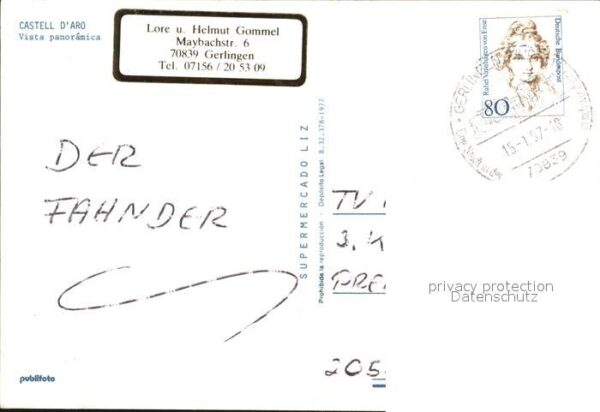 CASTELL D'ARO
Vista panorámica
Lore u. Helmut Gommel
Maybachstr. 6
70839 Gerlingen
Tel. 07156 / 20 53 09
Rahel Varnhagen von Ense
Deutsche Bundespost
80
GERLINGEN
Die Stadt an der
15-1.97-18
70839
SUPERMERCADO LIZ
Prohibida la reproducción - Depósito Legal B. 32.378-1977
DER
FAHNDER
TV
3. K
205
privacy protection
Datenschutz
publifoto